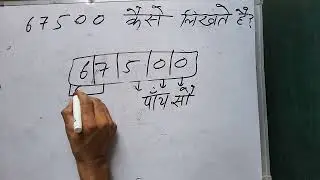 67500 कैसे लिखते है?
67500
पाँच सौ